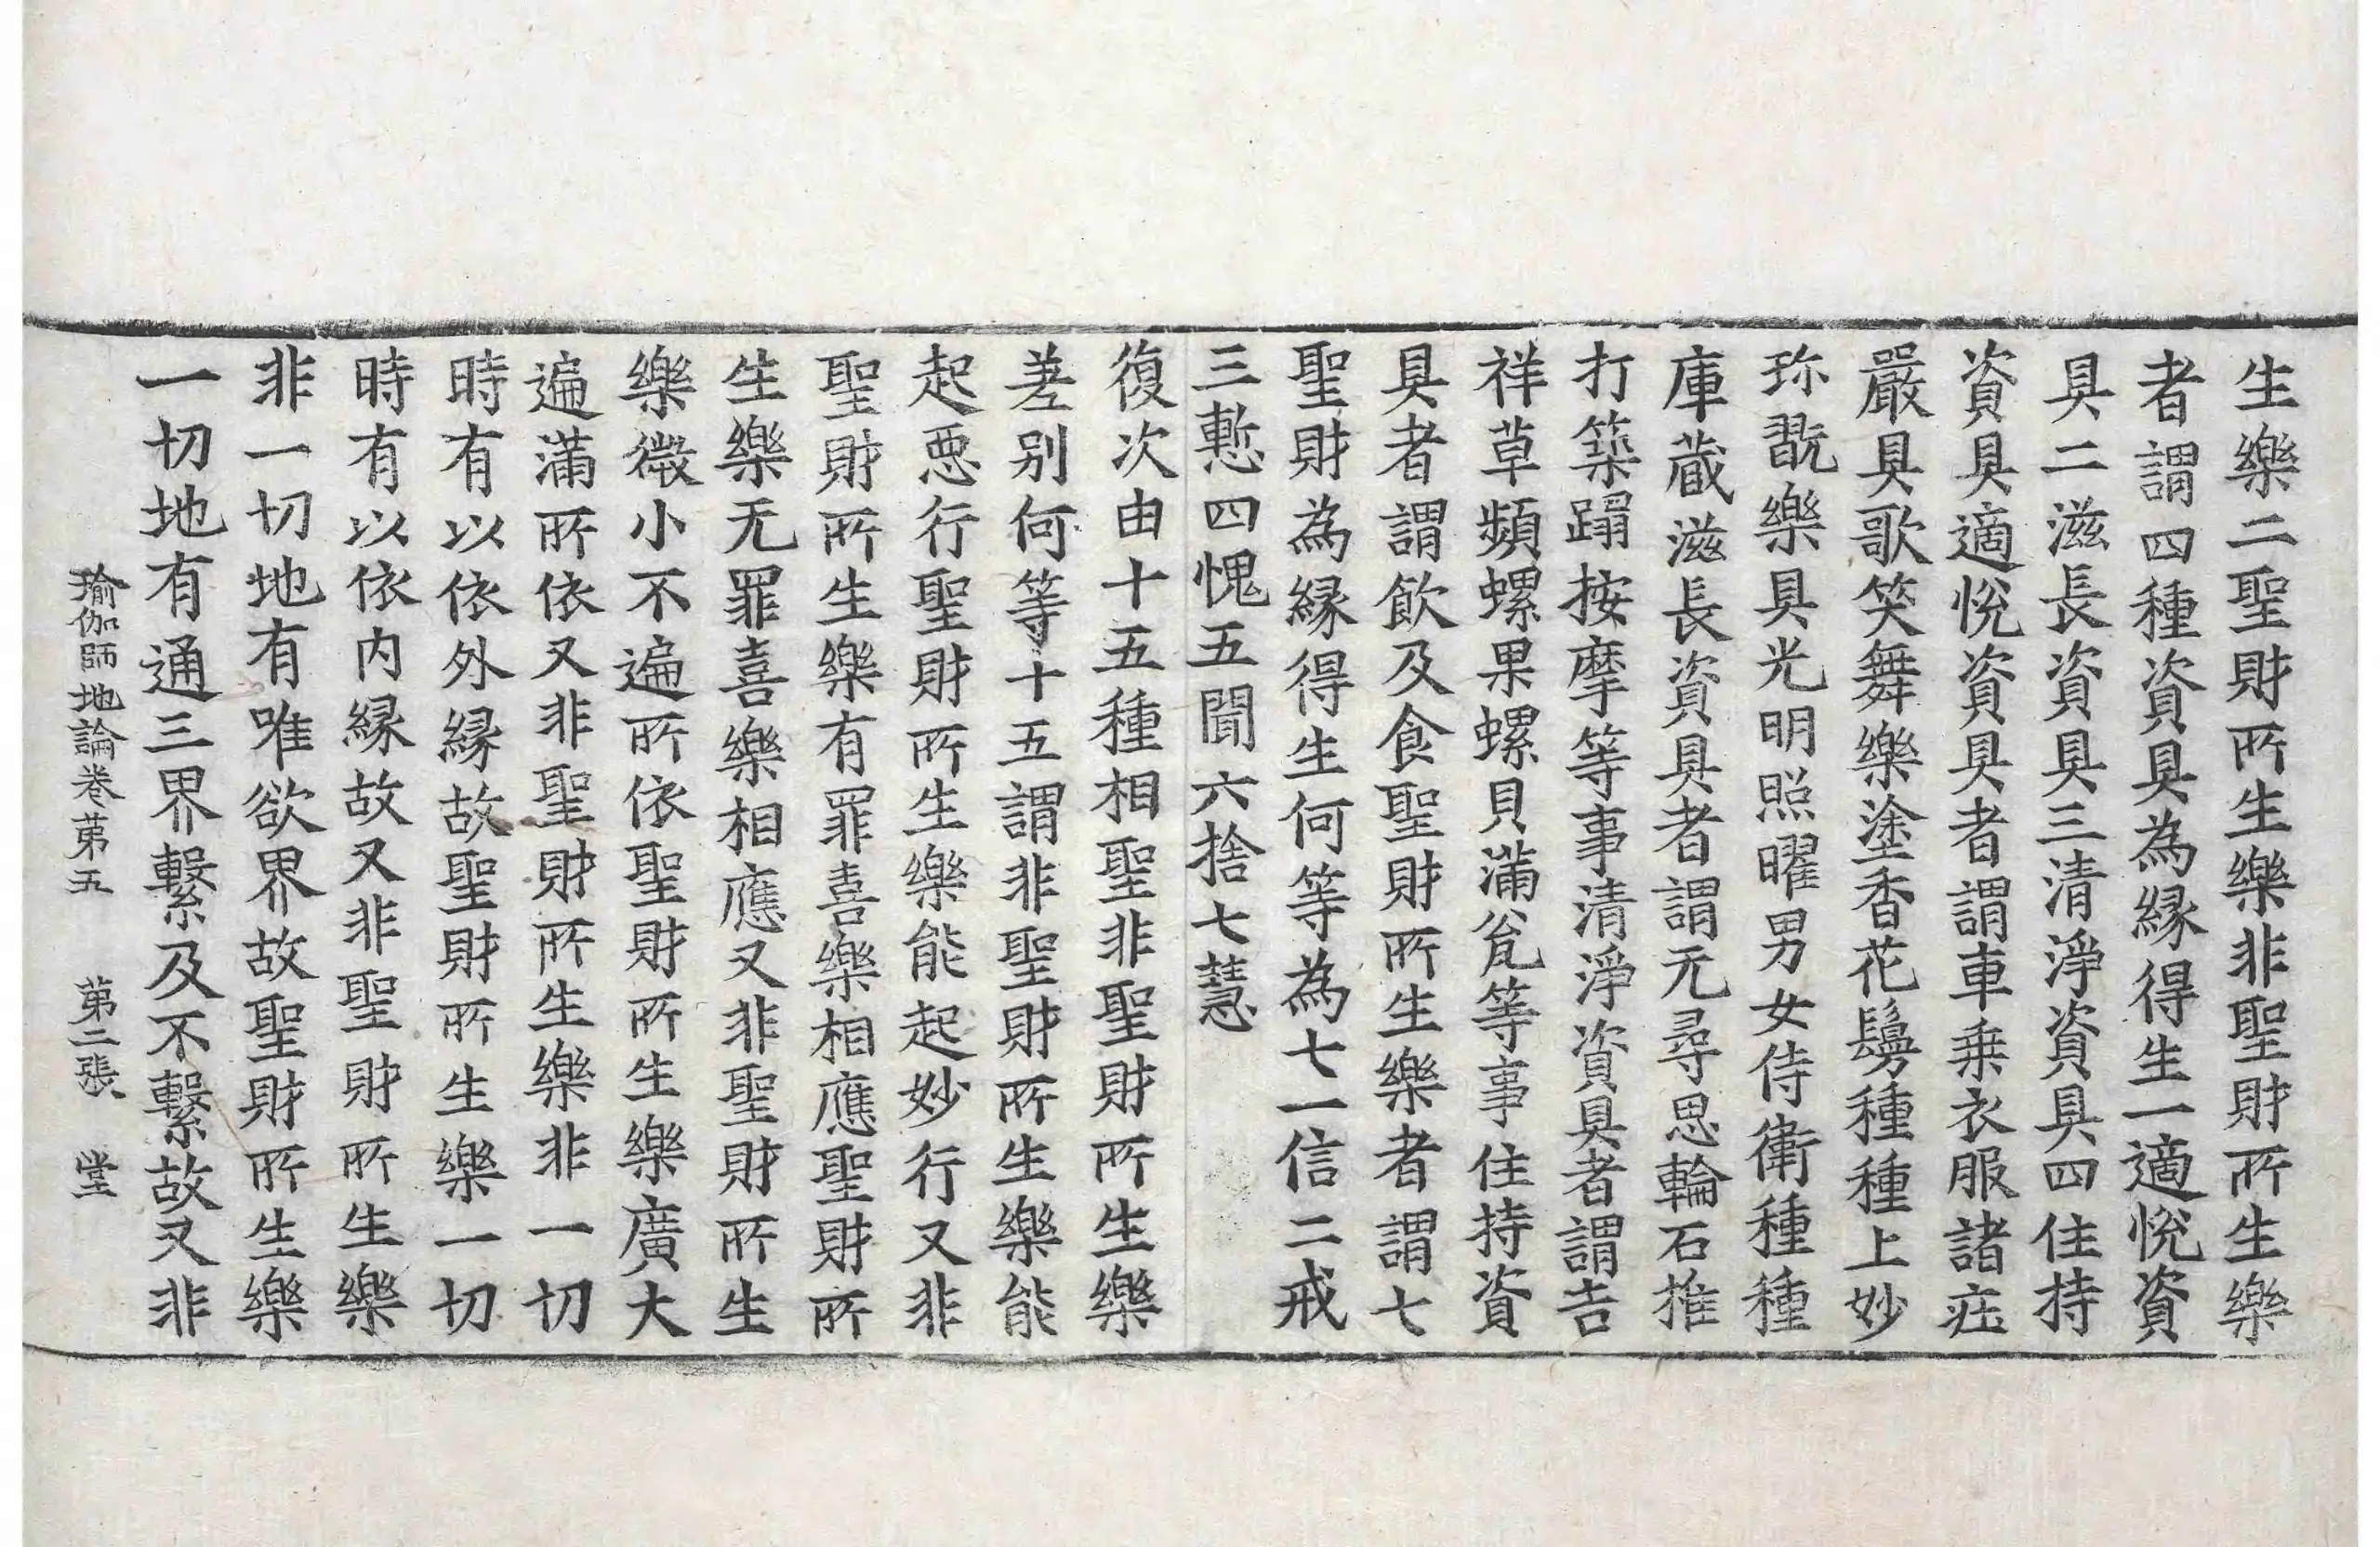 生樂二聖財所生樂非聖財所生樂
者謂四種資具為緣得生一適悅資
具二滋長資具三清淨資具四住持
資具適悅資具者謂車乗衣服諸㽵
嚴具歌笑舞樂塗香花鬘種種上妙
珎翫樂具光明照曜男女侍衛種種
庫蔵滋長資具者謂无尋思輪石推
打築蹋按摩等事清淨資具者謂吉
祥草頻螺果螺貝滿瓮等事住持資
具者謂飲及食聖財所生樂者謂七
聖財為緣得生何等為七一信二戒
三慙四愧五聞六捨七慧
復次由十五種相聖非聖財所生樂
差别何等十五謂非聖財所生樂能
起惡行聖財所生樂能起妙行又非
聖財所生樂有罪喜樂相應聖財所
生樂无罪喜樂相應又非聖財所生
樂微小不遍所依聖財所生樂廣大
遍滿所依又非聖財所生樂非一切
時有以依外緣故聖財所生樂一切
時有以依内緣故又非聖財所生樂
非一切地有唯欲界故聖財所生樂
一切地有通三界繫及不繫故又非
瑜伽師地論卷苐五 苐二張 堂